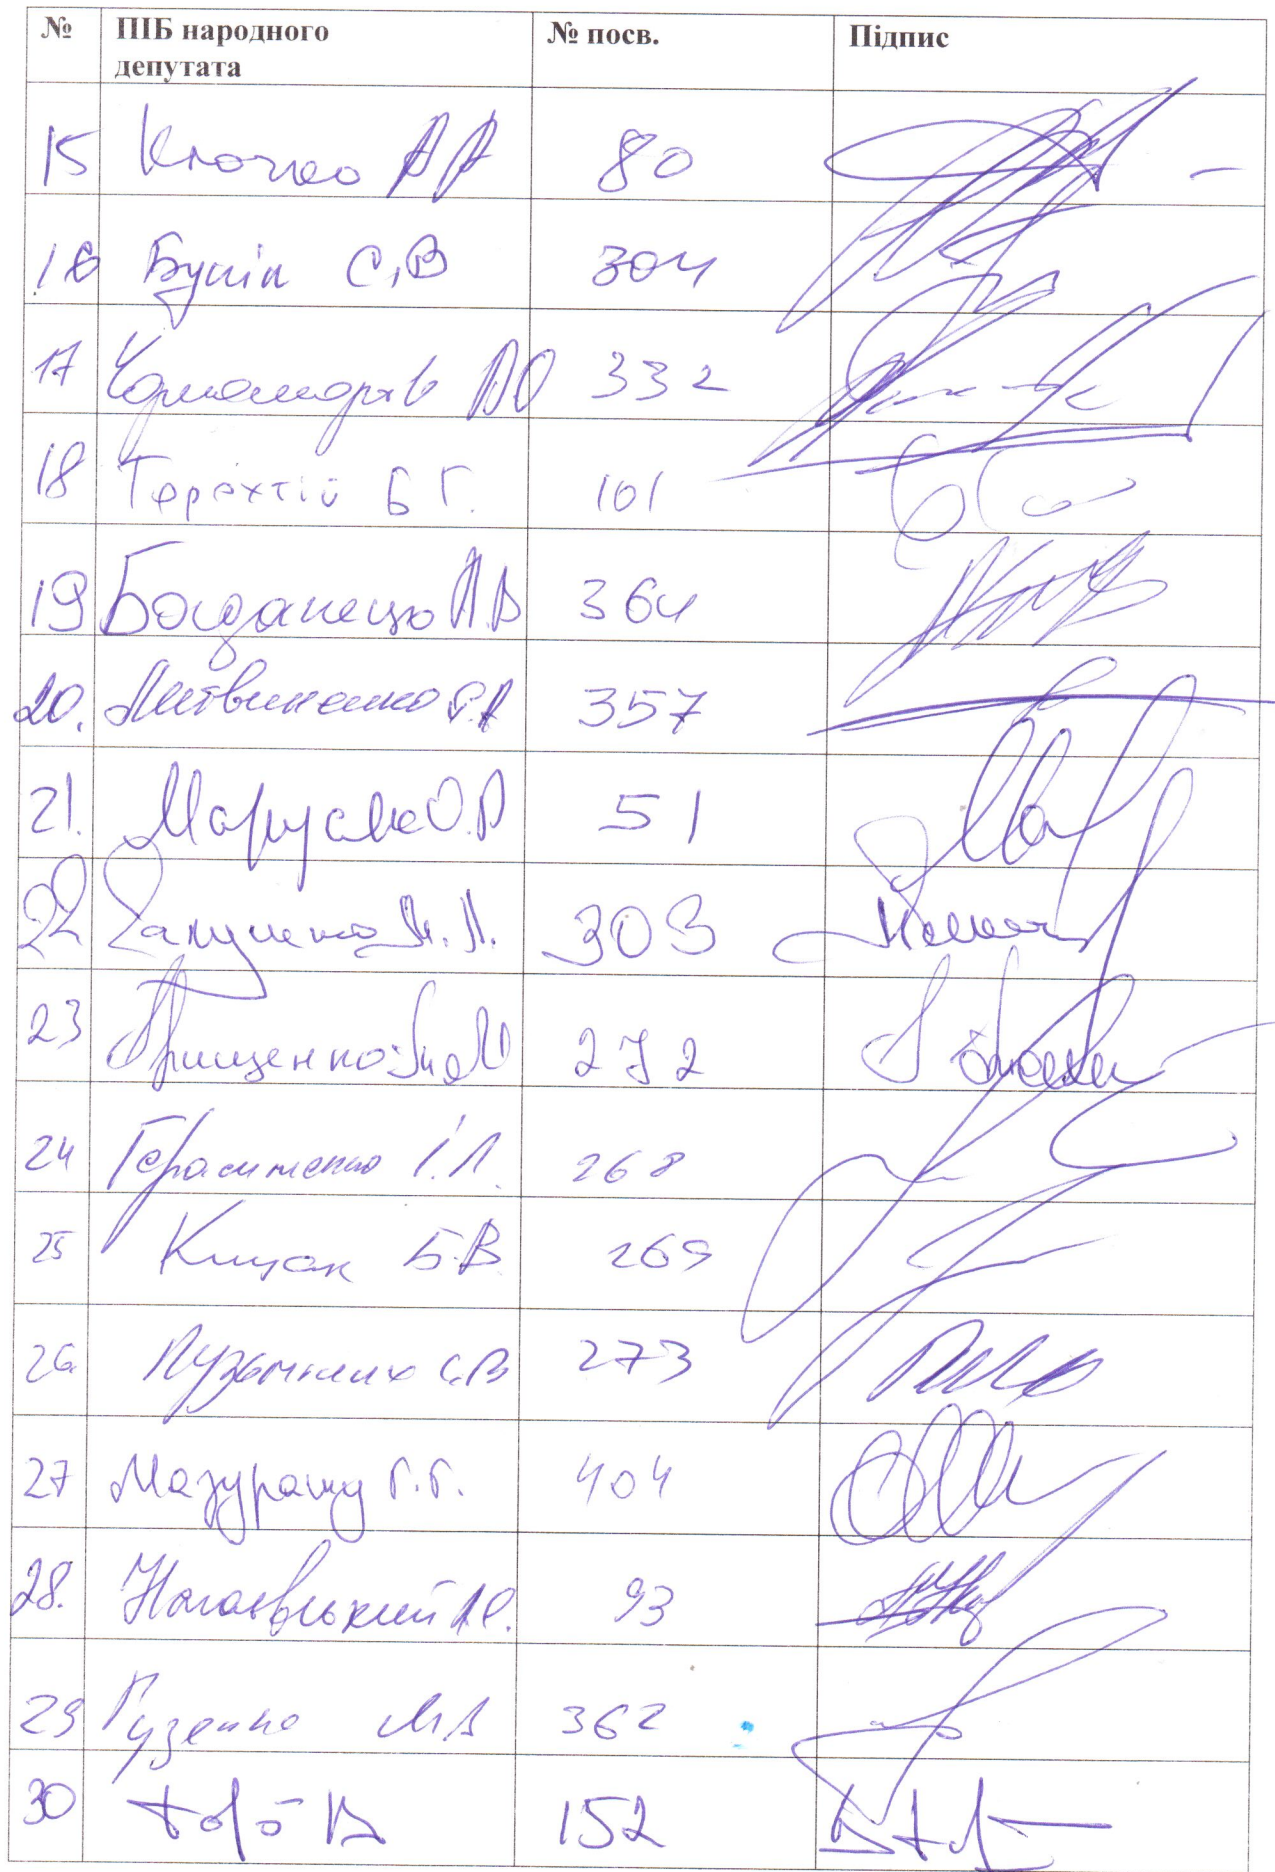 № ПІБ народного депутата № посв. Підпис
15 Клочко А А 80
16 Бунін С.В 304
17 Чорноморов АО 332
18 Торохтій Б Г. 101
19 Богданець А.В 364
20. Литвиненко С.А 357
21. Марусяк О.Р 51
22 М.М. 303
23 Грищенко М 272
24 Герасименко І.Л. 268
25 Кицак Б.В. 269
26 Кузьміних С.В 273
27 Мазурашу Г.Г. 404
28. Нагаєвський А.С. 93
29 Гузенко М.В 362
30 В 152